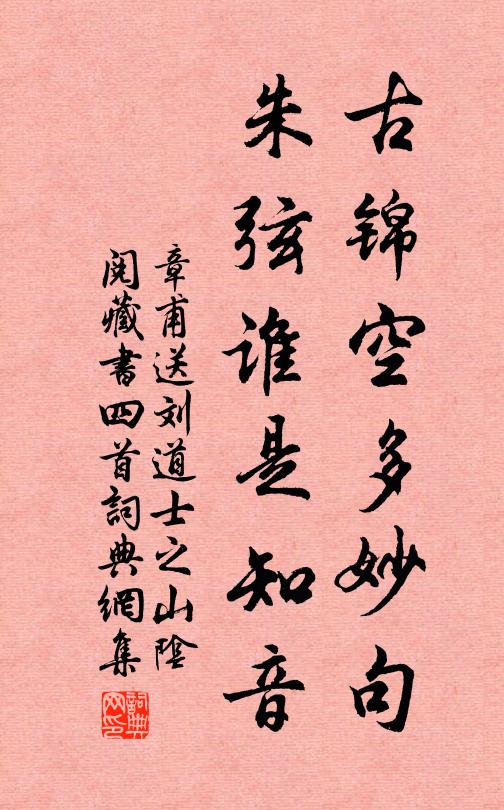 古锦空多妙句
朱弦谁是知音
章甫送刘道士之山陰
閱藏書四首詞典網集
詞典
网印